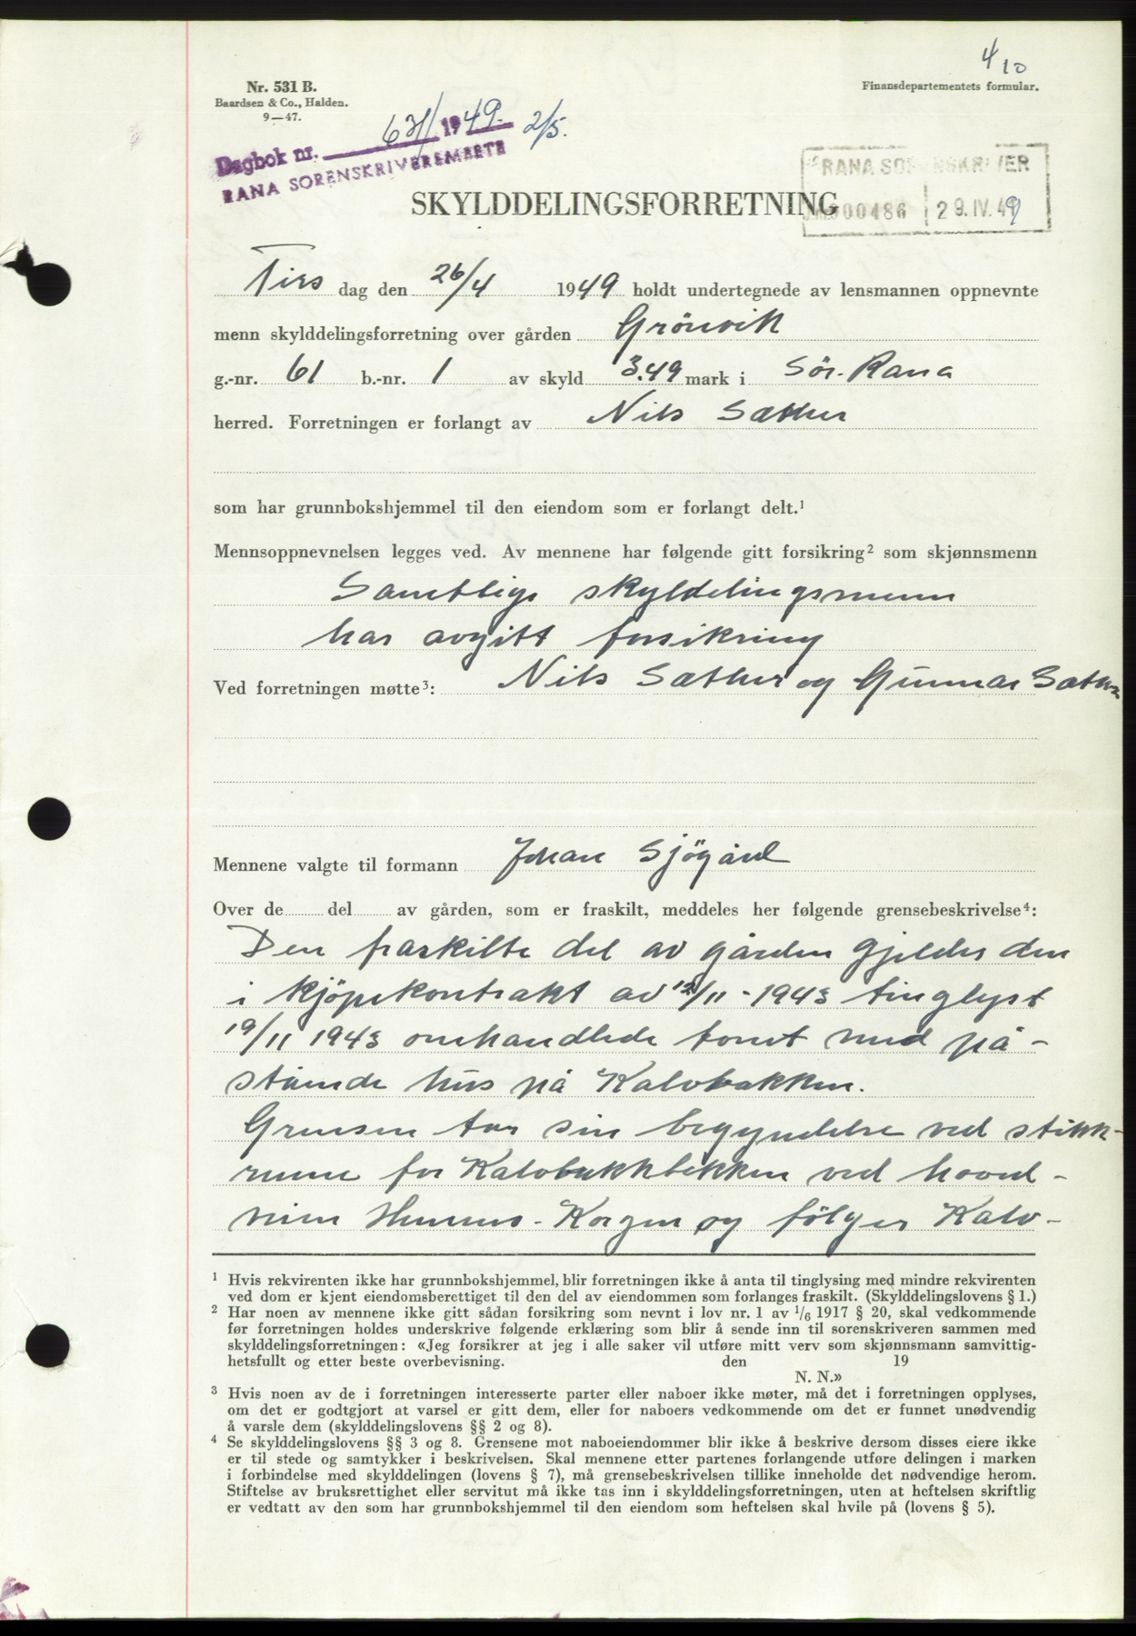 4/10
Nr. 531 B.
Baardsen & Co., Halden.
9—47.
Finansdepartementets formular.
Dagbok nr. 631 1949. 2/5.
RANA SORENSKRIVEREMBETE
RANA SORENSKRIVER
000486 29.IV.49
SKYLDDELINGSFORRETNING
Tirs dag den 26/4 1949 holdt undertegnede av lensmannen oppnevnte
menn skylddelingsforretning over gården Grönvik
g.-nr. 61 b.-nr. 1 av skyld 3.49 mark i Sör-Rana
herred. Forretningen er forlangt av Nils Sæther
som har grunnbokshjemmel til den eiendom som er forlangt delt.¹
Mennsoppnevnelsen legges ved. Av mennene har følgende gitt forsikring² som skjønnsmenn
Samtlige skyldelingsmenn
har avgitt forsikring
Ved forretningen møtte³: Nils Sæther og Gunnar Sæther
Mennene valgte til formann Johan Sjögård
Over de del av gården, som er fraskilt, meddeles her følgende grensebeskrivelse⁴:
Den fraskilte del av gården gjelder den
i kjöpekontrakt av 12/11-1943 tinglyst
19/11 1943 omhandlede tomt med på-
stående hus på Kalvbakken.
Grensen tar sin begyndelse ved stikk-
renne for Kalvbakkbekken ved hoved-
veien Hemnes-Korgen og fölger Kalv-
¹ Hvis rekvirenten ikke har grunnbokshjemmel, blir forretningen ikke å anta til tinglysing med mindre rekvirenten
ved dom er kjent eiendomsberettiget til den del av eiendommen som forlanges fraskilt. (Skylddelingslovens § 1.)
² Har noen av mennene ikke gitt sådan forsikring som nevnt i lov nr. 1 av ¹/₆ 1917 § 20, skal vedkommende
før forretningen holdes underskrive følgende erklæring som blir å sende inn til sorenskriveren sammen med
skylddelingsforretningen: «Jeg forsikrer at jeg i alle saker vil utføre mitt verv som skjønnsmann samvittig-
hetsfullt og etter beste overbevisning. den 19
N. N.»
³ Hvis noen av de i forretningen interesserte parter eller naboer ikke møter, må det i forretningen opplyses,
om det er godtgjort at varsel er gitt dem, eller for naboers vedkommende om det er funnet unødvendig
å varsle dem (skylddelingslovens §§ 2 og 8).
⁴ Se skylddelingslovens §§ 3 og 8. Grensene mot naboeiendommer blir ikke å beskrive dersom disses eiere ikke
er til stede og samtykker i beskrivelsen. Skal mennene etter partenes forlangende utføre delingen i marken
i forbindelse med skylddelingen (lovens § 7), må grensebeskrivelsen tillike inneholde det nødvendige herom.
Stiftelse av bruksrettighet eller servitut må ikke tas inn i skylddelingsforretningen, uten at heftelsen skriftlig
er vedtatt av den som har grunnbokshjemmel til den eiendom som heftelsen skal hvile på (lovens § 5).